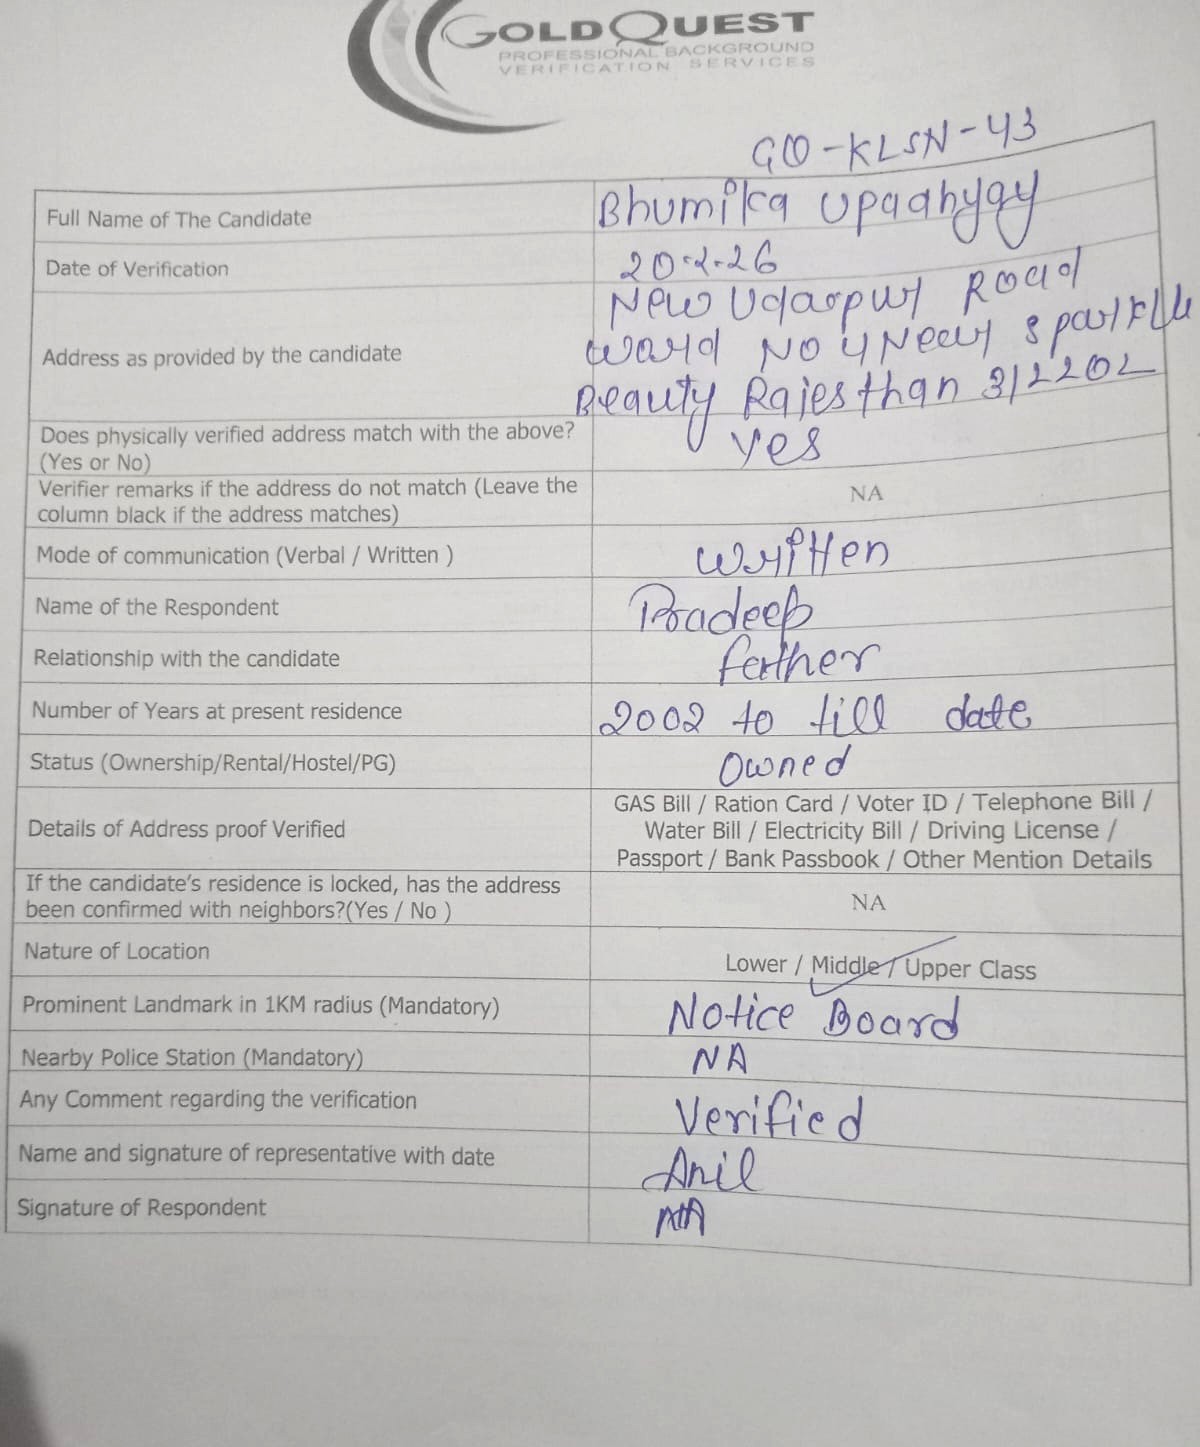 GOLDQUEST
PROFESSIONAL BACKGROUND
VERIFICATION SERVICES
GQ-KLSN-43
Full Name of The Candidate Bhumika Upadhyay
Date of Verification 20-2-26
Address as provided by the candidate New Udaipur Road
Ward No 4 Near Sparkle
Beauty Rajesthan 312202
Does physically verified address match with the above?
(Yes or No) yes
Verifier remarks if the address do not match (Leave the
column black if the address matches) NA
Mode of communication (Verbal / Written ) Written
Name of the Respondent Pradeep
Relationship with the candidate father
Number of Years at present residence 2002 to till date
Status (Ownership/Rental/Hostel/PG) Owned
Details of Address proof Verified GAS Bill / Ration Card / Voter ID / Telephone Bill /
Water Bill / Electricity Bill / Driving License /
Passport / Bank Passbook / Other Mention Details
If the candidate's residence is locked, has the address
been confirmed with neighbors?(Yes / No ) NA
Nature of Location Lower / Middle / Upper Class
Prominent Landmark in 1KM radius (Mandatory) Notice Board
Nearby Police Station (Mandatory) NA
Any Comment regarding the verification Verified
Name and signature of representative with date Anil
Signature of Respondent NA